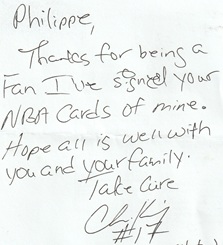 Philippe,
Thanks for being a
Fan I've signed your
NBA Cards of mine.
Hope all is well with
you and your family.
Take Care
#17